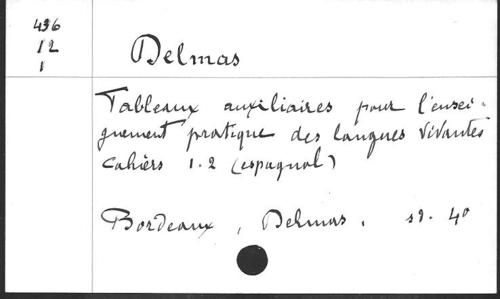 436
12
1
Delmas
Tableaux auxiliaires pour l'ensei-
gnement pratique des langues vivantes
Cahiers 1.2 (espagnol)
Bordeaux, Delmas. s.d. 40